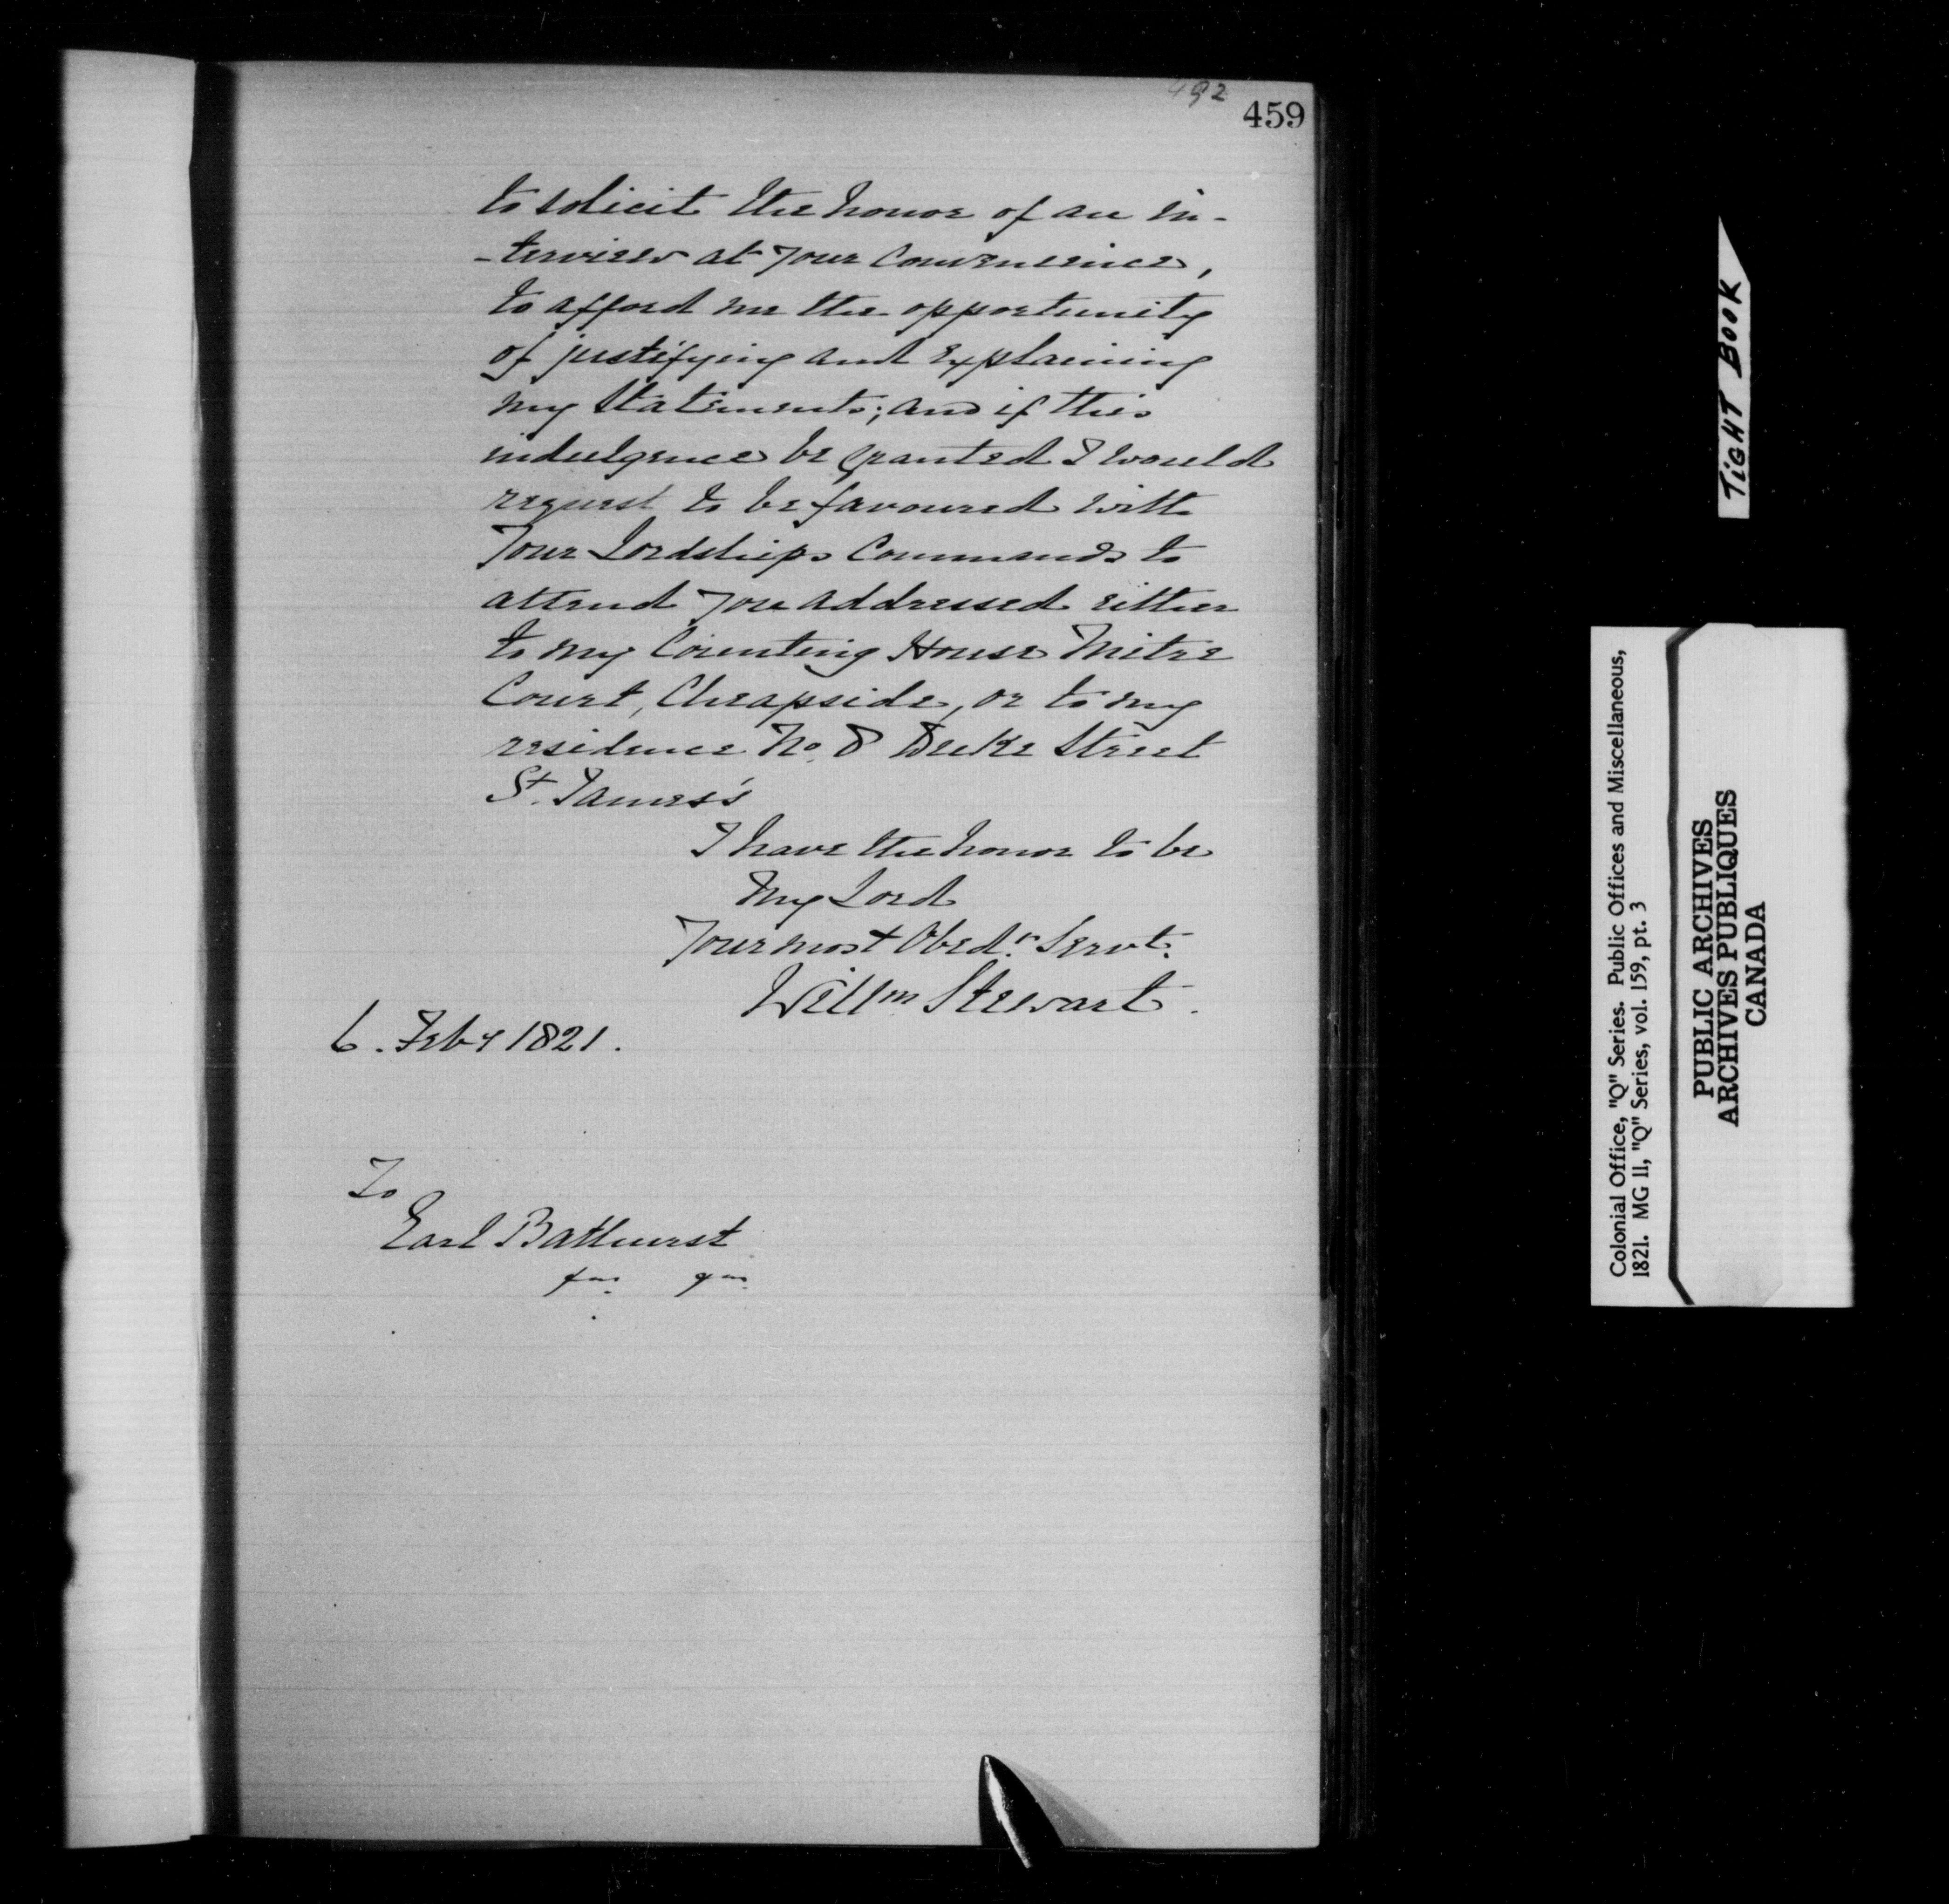 492
459
to solicit the honor of an in-
-terview at your convenience,
to afford me the opportunity
of justifying and explaining
my statements; and if this
indulgence be granted I would
request to be favoured with
Your Lordships Commands to
attend you addressed either
to my Counting House Mitre
Court, Cheapside, or to my
residence No. 8 Duke Street
St. James's
I have the honor to be
My Lord
Your most Obedt. Servt.
Willm Stewart.
6. Feby 1821.
To
Earl Bathurst
TIGHT BOOK
Colonial Office, "Q" Series. Public Offices and Miscellaneous,
1821. MG 11, "Q" Series, vol. 159, pt. 3
PUBLIC ARCHIVES
ARCHIVES PUBLIQUES
CANADA